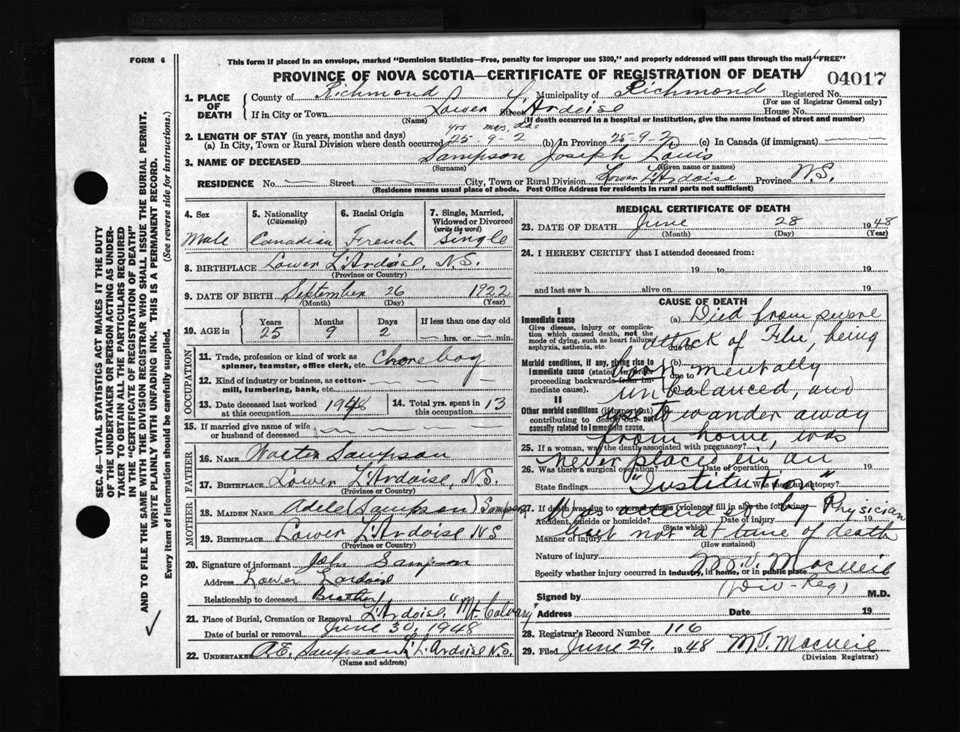 FORM 6
This form if placed in an envelope, marked "Dominion Statistics—Free, penalty for improper use $300," and properly addressed will pass through the mail "FREE"
PROVINCE OF NOVA SCOTIA—CERTIFICATE OF REGISTRATION OF DEATH 04017
1. PLACE OF DEATH
County of Richmond Municipality of Richmond Registered No.
(For use of Registrar General only)
If in City or Town Lower L'Ardoise Street House No.
(Name) (If death occurred in a hospital or institution, give the name instead of street and number)
2. LENGTH OF STAY (in years, months and days) yrs mos. da.
(a) In City, Town or Rural Division where death occurred 25-9-2 (b) In Province 25-9-2 (c) In Canada (if immigrant)
3. NAME OF DECEASED Sampson Joseph Louis
(Surname) (Given name or names)
RESIDENCE No. — Street City, Town or Rural Division Lower L'Ardoise Province N.S.
(Residence means usual place of abode. Post Office Address for residents in rural parts not sufficient)
4. Sex
Male
5. Nationality
(Citizenship)
Canadian
6. Racial Origin
French
7. Single, Married, Widowed or Divorced
(write the word)
Single
8. BIRTHPLACE Lower L'Ardoise, N.S.
(Province or Country)
9. DATE OF BIRTH September 26 1922
(Month) (Day) (Year)
10. AGE in
Years Months Days If less than one day old
25 9 2 hrs. or min.
OCCUPATION
11. Trade, profession or kind of work as spinner, teamster, office clerk, etc. Chore boy
12. Kind of industry or business, as cotton-mill, lumbering, bank, etc.
13. Date deceased last worked at this occupation 1948
14. Total yrs. spent in this occupation 13
15. If married give name of wife or husband of deceased
FATHER
16. NAME Walter Sampson
17. BIRTHPLACE Lower L'Ardoise, N.S.
(Province or Country)
MOTHER
18. MAIDEN NAME Adele (Sampson) Sampson
19. BIRTHPLACE Lower L'Ardoise N.S.
(Province or Country)
20. Signature of informant John Sampson
Address Lower Lardoise
Relationship to deceased Brother
21. Place of Burial, Cremation or Removal L'Ardoise, "Mt. Calvary"
Date of burial or removal June 30, 1948
22. UNDERTAKER A.E. Sampson L. L'Ardoise N.S.
(Name and address)
MEDICAL CERTIFICATE OF DEATH
23. DATE OF DEATH June 28 1948
(Month) (Day) (Year)
24. I HEREBY CERTIFY that I attended deceased from:
19 to 19
and last saw h alive on 19
CAUSE OF DEATH
I
Immediate cause
Give disease, injury or complication which caused death, not the mode of dying, such as heart failure, asphyxia, asthenia, etc.
Morbid conditions, if any, giving rise to immediate cause (stated in order proceeding backwards from immediate cause).
II
Other morbid conditions (if important) contributing to death but not causally related to immediate cause.
(a) Died from severe
attack of Flu, being
(b)
due to
mentally
unbalanced, and
wander away
from home, was
never placed in an
"Institution"
Was attended by Physician
but not at time of death
25. If a woman, was the death associated with pregnancy?
26. Was there a surgical operation? Date of operation 19
State findings Was there autopsy?
27. If death was due to external causes (violence) fill in also the following:
Accident, suicide or homicide? Date of injury 19
(State which)
Manner of injury
(How sustained)
Nature of injury
Specify whether injury occurred in industry, in home, or in public place
M.J. Macneil
(Div-Reg)
Signed by M.D.
Address Date 19
28. Registrar's Record Number 116
29. Filed June 29. 1948 M.J. Macneil
(Division Registrar)
SEC. 46—VITAL STATISTICS ACT MAKES IT THE DUTY OF THE UNDERTAKER OR PERSON ACTING AS UNDERTAKER TO OBTAIN ALL THE PARTICULARS REQUIRED IN THE "CERTIFICATE OF REGISTRATION OF DEATH" AND TO FILE THE SAME WITH THE DIVISION REGISTRAR WHO SHALL ISSUE THE BURIAL PERMIT.
WRITE PLAINLY WITH UNFADING INK. THIS IS A PERMANENT RECORD.
Every item of information should be carefully supplied. (See reverse side for instructions.)